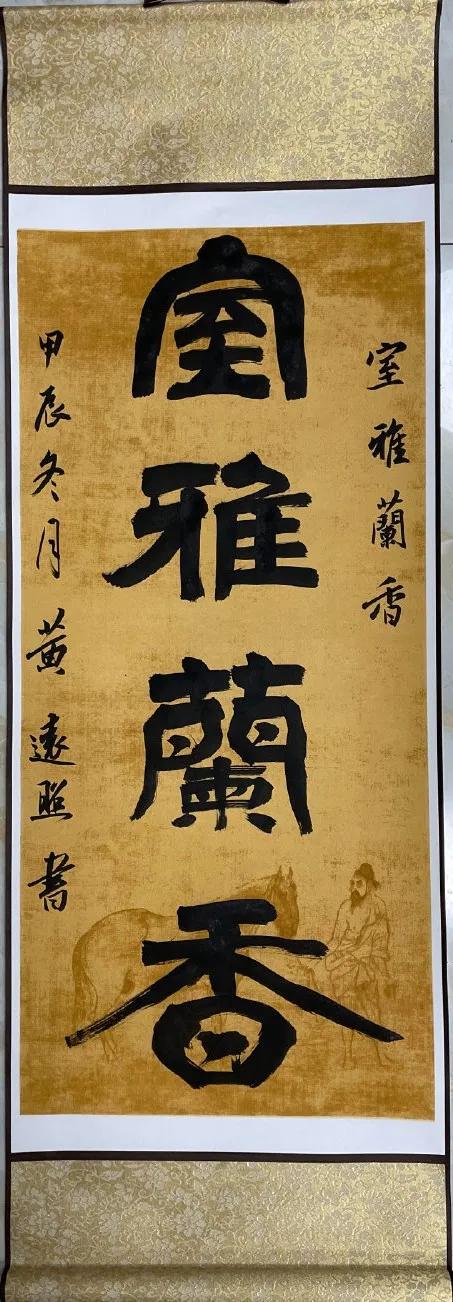 室雅蘭香
室雅蘭香
甲辰冬月黄遠照書